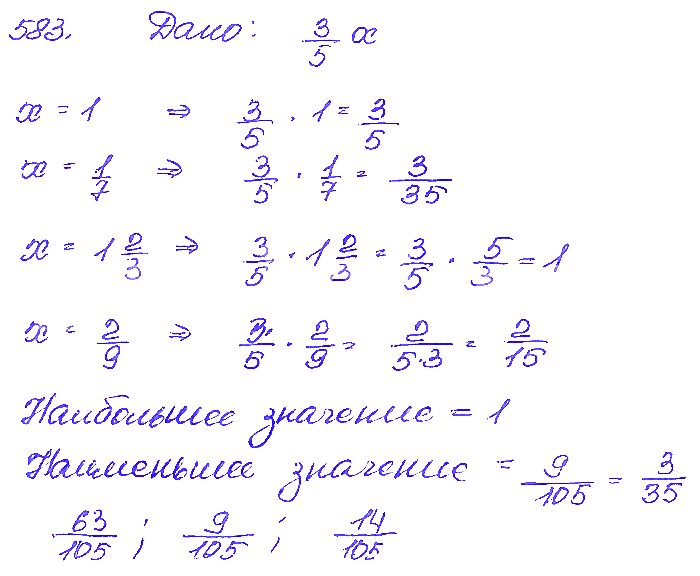 583. Дано: 3/5 x
x = 1 ⇒ 3/5 · 1 = 3/5
x = 1/7 ⇒ 3/5 · 1/7 = 3/35
x = 1 2/3 ⇒ 3/5 · 1 2/3 = 3/5 · 5/3 = 1
x = 2/9 ⇒ 3/5 · 2/9 = 2/5·3 = 2/15
Наибольшее значение = 1
Наименьшее значение = 9/105 = 3/35
63/105 ; 9/105 ; 14/105